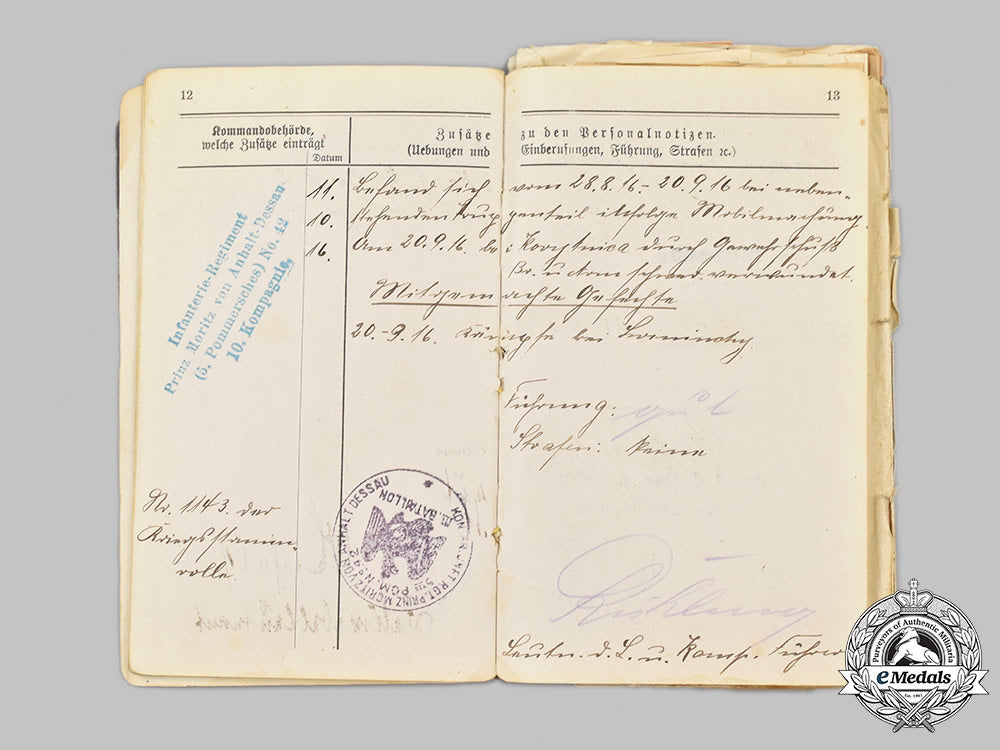 12
13
Kommandobehörde,
welche Zusätze einträgt
Datum
Zusätze zu den Personalnotizen.
(Uebungen und Einberufungen, Führung, Strafen ꝛc.)
Infanterie-Regiment
Prinz Moritz von Anhalt-Dessau
(5. Pommersches) No. 42
10. Kompagnie.
11. Befand sich vom 28.8.16 – 20.9.16 bei neben-
10. stehenden Truppenteil infolge Mobilmachung
16. Am 20.9.16. bei durch Gewehrschuß
Br. u. Arm schwer verwundet.
Mitgemachte Gefechte
20-9.16. Kämpfe bei
Führung: gut
Strafen: keine
Nr. 1143. der
Kriegsstamm-
rolle.
INFT. RGT. PRINZ MORITZ VON ANHALT DESSAU
III. BATAILLON
5tes POM. No 42
Leutn. d. L. u. Komp. Führer
Purveyors of Authentic Militaria
eMedals